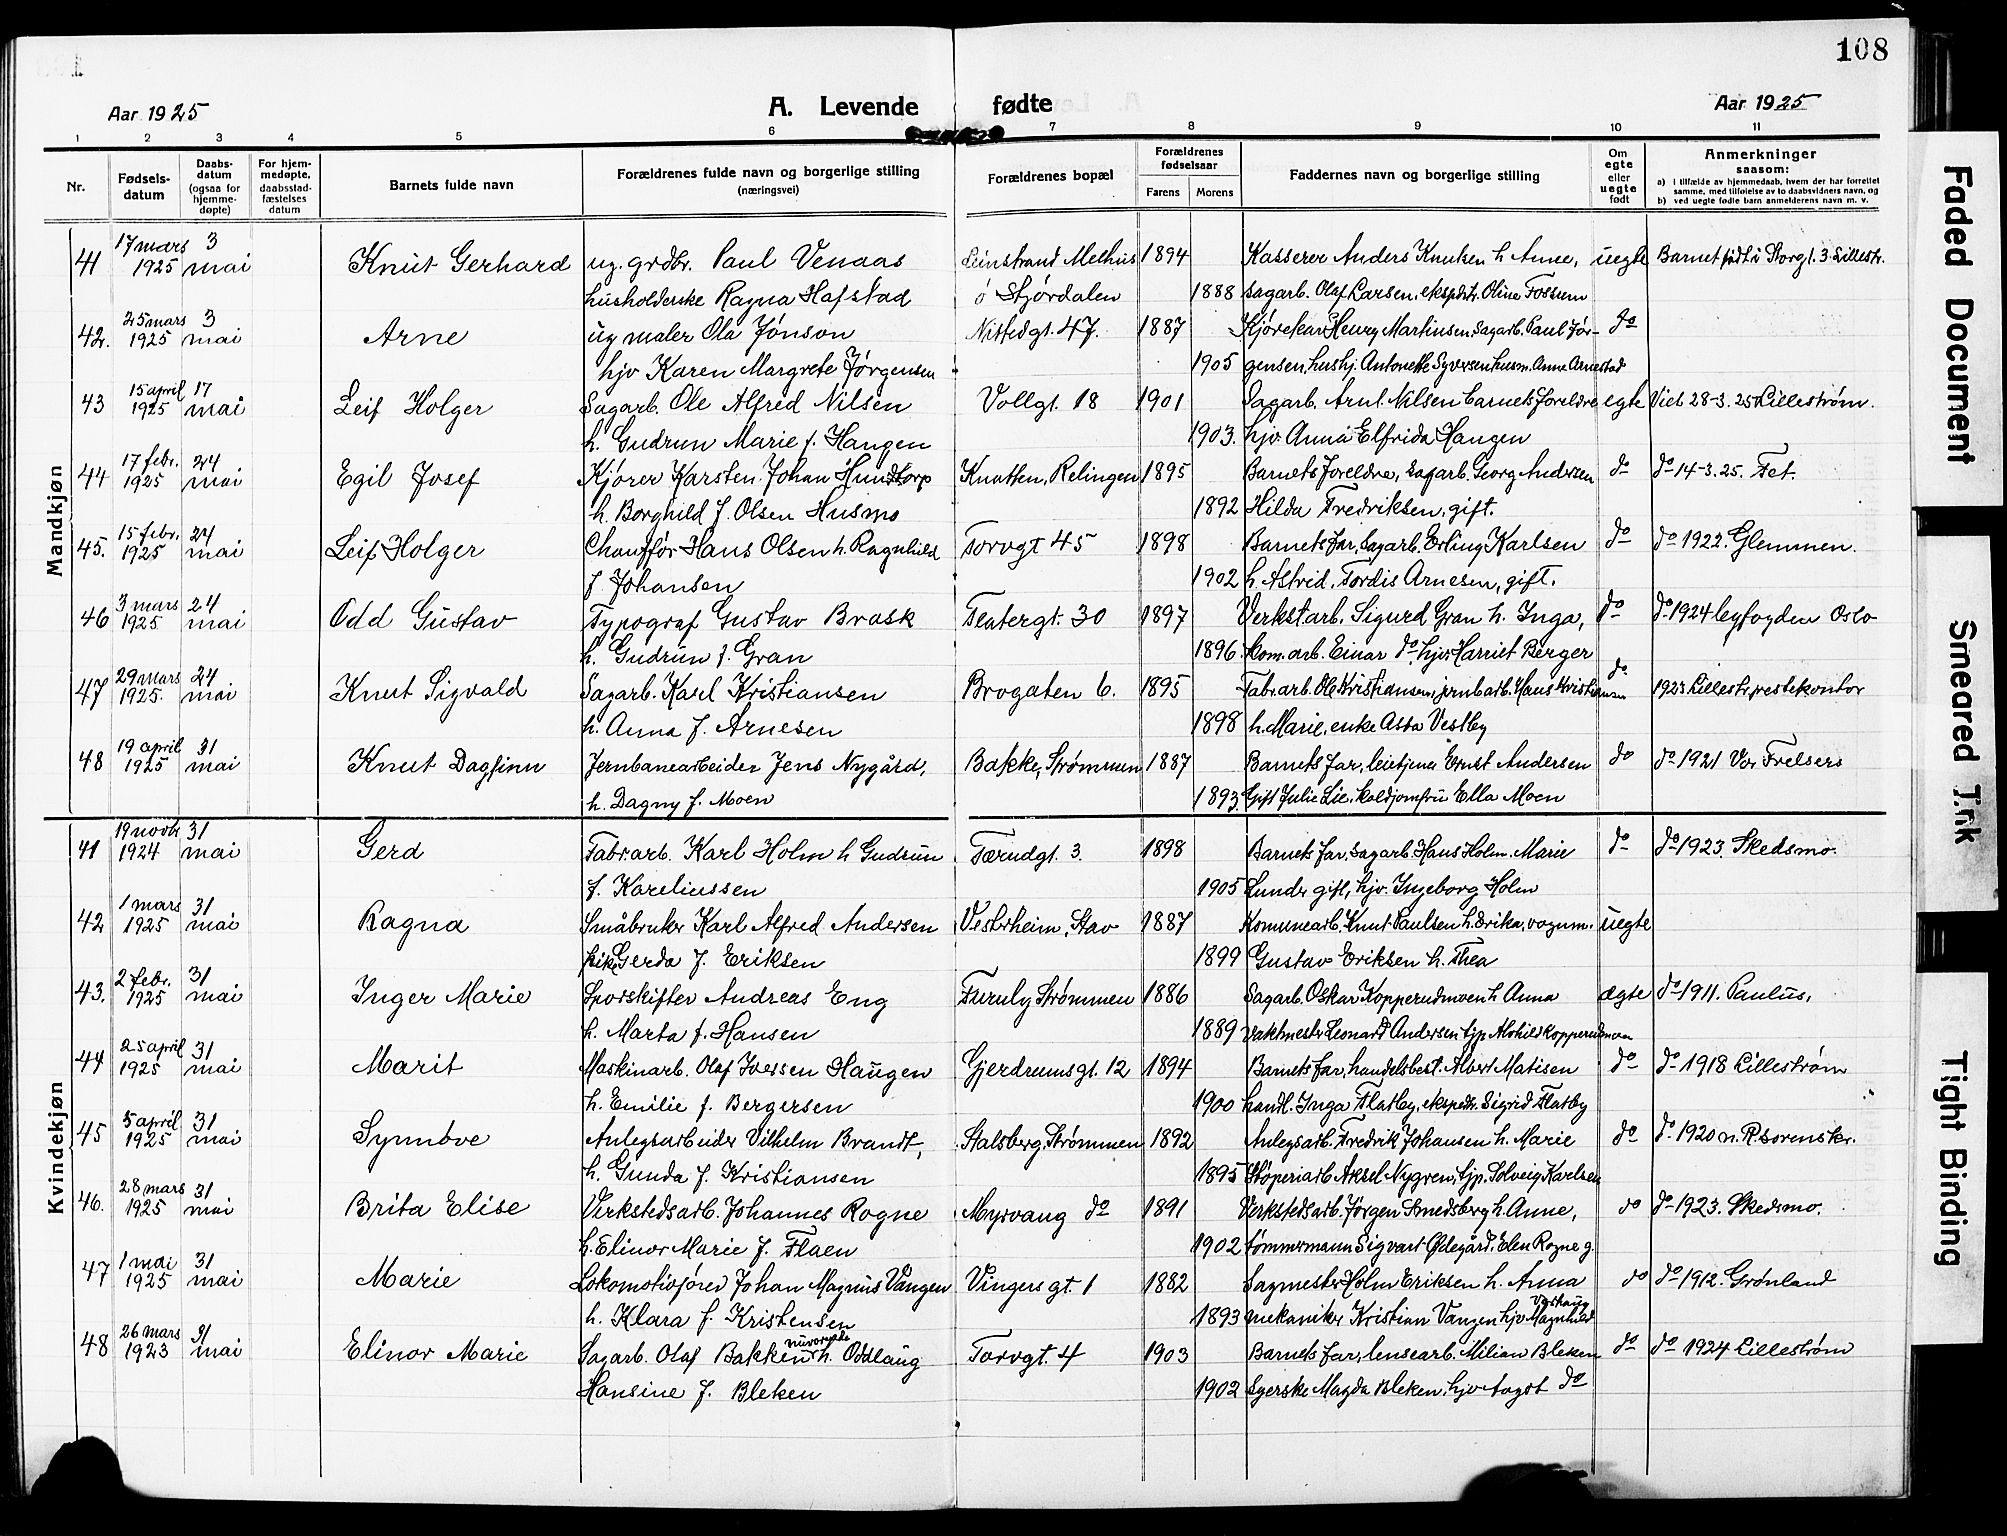 108
Aar 1925 A. Levende fødte Aar 1925
1 2 3 4 5 6 7 8 9 10 11
Nr. Fødsels-datum Daabs-datum (ogsaa for hjemme-døpte) For hjem-medøpte, daabsstad-fæstelses datum Barnets fulde navn Forældrenes fulde navn og borgerlige stilling (næringsvei) Forældrenes bopæl Forældrenes fødselsaar Farens Morens Faddernes navn og borgerlige stilling Om egte eller uegte født Anmerkninger saasom: a) i tilfælde av hjemmedaab, hvem der har forrettet samme, med tilføielse av to daabsvidners navn, og b) ved uegte fødte barn anmelderens navn m. v.
Mandkjøn
41 17 mars 1925 3 mai Knut Gerhard ug. grdbr. Paul Venaas Leinstrand Melhus 1894 Kasserer Anders Knutsen h Anne, uegte Barnet født i Storgt. 3 Lillestr.
husholderske Ragna Hafstad ö Stjørdalen 1888 sagarb. Olaf Larsen, ekspdtr. Oline Fossum
42. 25 mars 1925 3 mai Arne ug maler Ola Jønson Nittedgt. 47. 1887 Kjørekar Henry Martinsen, Sagarb. Paul Jør- do
hjv Karen Margrete Jørgensen 1905 gensen, hushj. Antonette Syversen husm. Anna Arnestad
43 15 april 1925 17 mai Leif Holger Sagarb. Ole Alfred Nilsen Vollgt. 18 1901 Sagarb. Arnt Nilsen barnets foreldre egte Viet 28-3. 25 Lillestrøm.
h. Gudrun Marie f. Haugen 1903. hjv. Anna Elfrida Haugen
44 17 febr. 1925 24 mai Egil Josef Kjører Karsten Johan Hundtorp Knatten, Relingen 1895 Barnets foreldre, sagarb. Georg Andrsen do do 14-3. 25. Fet.
h. Borghild f. Olsen Husmo 1892 Hilda Fredriksen, gift.
45. 15 febr. 1925 24 mai Leif Holger Chauffør Hans Olsen h. Ragnhild Torvgt 45 1898 Barnets far, Sagarb. Erling Karlsen do do 1922. Glemmen.
f. Johansen 1902 h. Astrid, Tordis Arnesen, gift.
46 3 mars 1925 24 mai Odd Gustav Typograf Gustav Brask Teatergt. 30 1897 Verkstarb. Sigurd Gran h. Inga, do do 1924 byfogden Oslo
h. Gudrun f. Gran 1896. kom. arb. Einar do, hjv. Harriet Berger
47 29 mars 1925. 24 mai Knut Sigvald Sagarb. Karl Kristiansen Brogaten 6. 1895 Fabr.arb. Ole Kristiansen, jernb.arb. Hans Kristiansen do 1923 Lillestr. prestekontor
h. Anna f. Arnesen 1898 h. Marie, enke Asta Vestby
48 19 april 1925 31 mai Knut Dagfinn Jernbanearbeider Jens Nygård, Bakke, Strømmen 1887 Barnets far, leietjener Ernst Andersen do do 1921 Vor Frelsers
h. Dagny f. Moen 1893. Gift Julie Lie, koldjomfru Ella Moen
Kvindekjøn
41 19 novbr 1924 31 mai Gerd Fabr.arb. Karl Holm h Gudrun Tærudgt. 3. 1898 Barnets far, sagarb. Hans Holm. Marie do do 1923. Skedsmo.
f. Kareliussen 1905 Lunder gift, hjv. Ingeborg Holm
42 1 mars 1925 31 mai Ragna Småbruker Karl Alfred Andersen Vestrheim, Stav 1887 Komunearb. Knut Paulsen h. Erika, vognm. uegte
pike Gerda f. Eriksen 1899 Gustav Eriksen h. Thea
43. 2 febr. 1925 31 mai Inger Marie Sporskifter Andreas Eng Furuly Strømmen 1886 Sagarb. Oskar Kopperudmoen h Anna ægte do 1911. Paulus,
h. Marta f. Hansen 1889 vaktmestr Leonard Andersen tjp. Alohild Kopperudmoen
44 25 april 1925 31 mai Marit Maskinarb. Olaf Iversen Haugen Gjerdrumsgt. 12 1894 Barnets far, handelsbest. Albert Matisen do do 1918 Lillestrøm
h. Emilie f. Bergersen 1900 handl. Inga Flatby, ekspedtr. Sigrid Flatby
45 5 april 1925 31 mai Synnöve Anlegsarbeider Vilhelm Brandt, Stalsberg, Strømmen 1892 Anlegsarb. Fredrik Johansen h. Marie do do 1920 n. R. sorenskr.
h. Gunda f. Kristiansen 1895 Støperiarb Aksel Nygren, tjp. Solveig Karlsen
46. 28 mars 1925 31 mai Brita Elise Verkstedsarb. Johannes Rogne Myrvang do 1891 Verkstedsarb. Jørgen Smedsberg h. Anne, do do 1923. Skedsmo.
h. Elinor Marie f. Flaen 1902 tømmermann Sigvart Ødegård. Elen Rogne g.
47 1 mai 1925 31 mai Marie Lokomotivfører Johan Magnus Vangen Vingers gt. 1 1882 Sagmester Holm Eriksen h. Anna do do 1912. Grønland
h. Klara f. Kristensen 1893 mekaniker Kristian Vangen hjv Magnhild Vestaug
48 26 mars 1923 31 mai Elinor Marie Sagarb. Olaf Bakken nuværende h. Oddlaug Torvgt. 4 1903 Barnets far, lensearb. Milian Bleken do do 1924 Lillestrøm
Hansine f. Bleken 1902 Syerske Magda Bleken, hjv Aagot do
Faded Document
Smeared Ink
Tight Binding